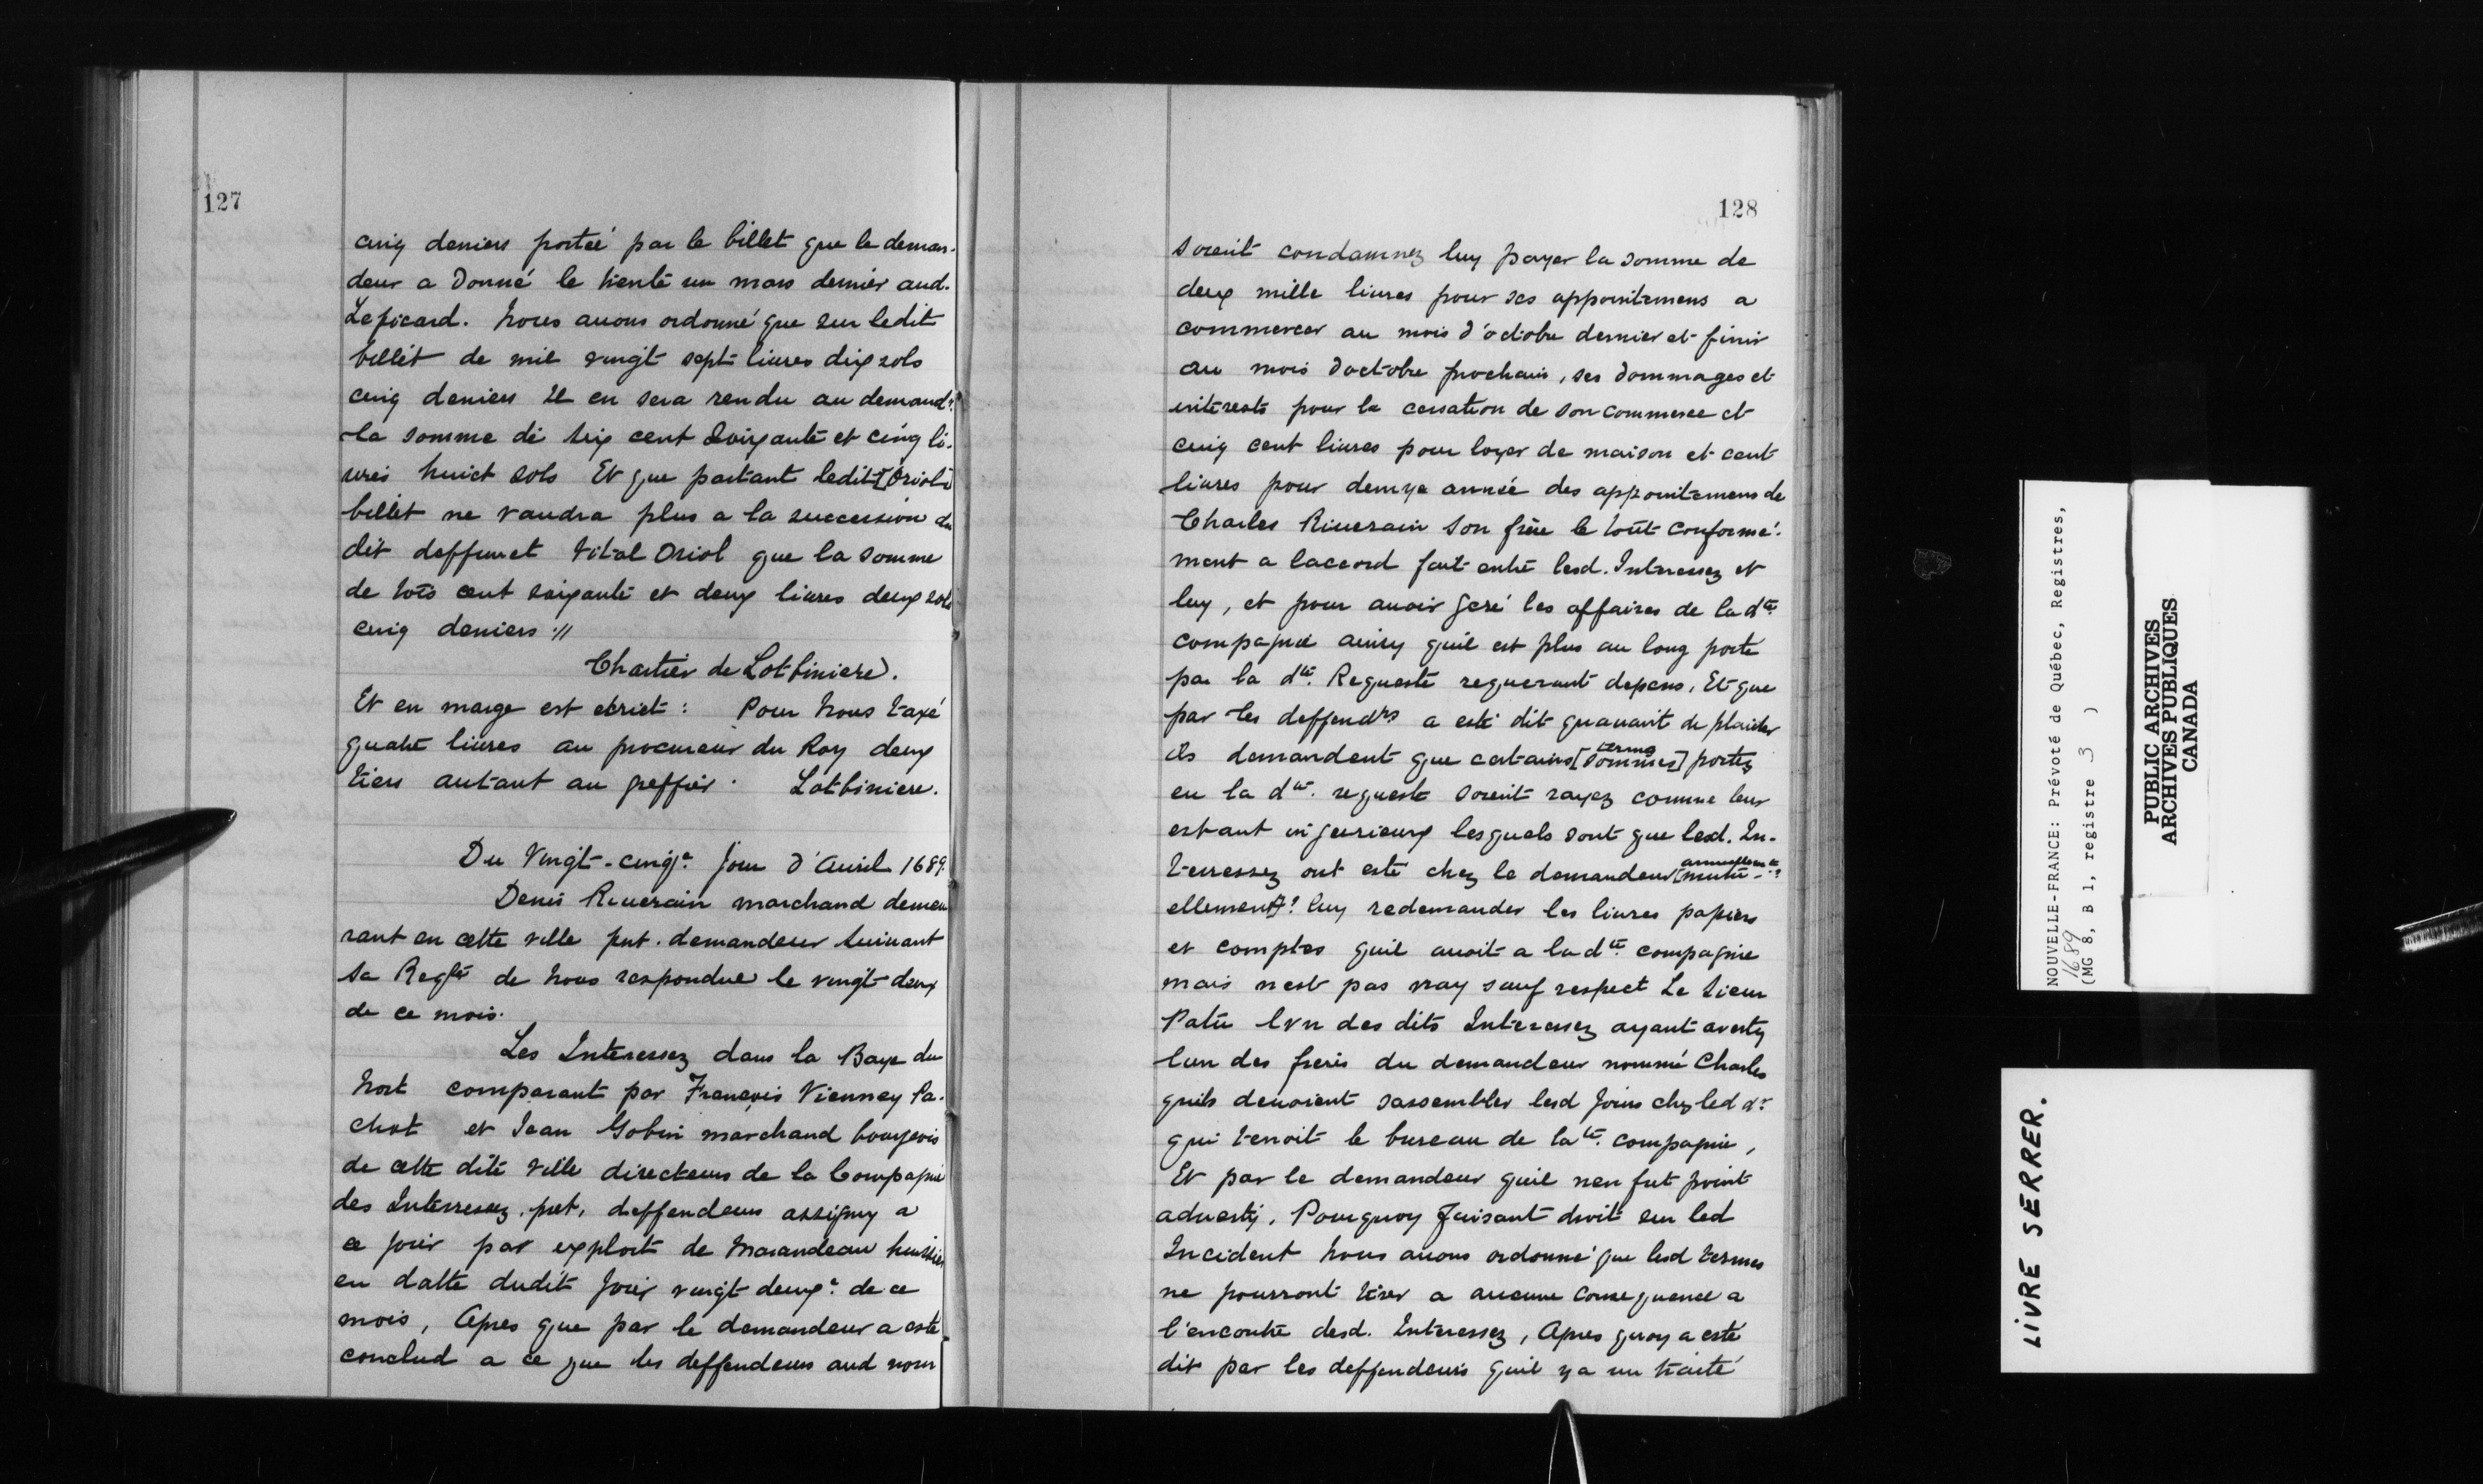 127
cinq deniers porteé par le billet que le deman-
deur a Donné le trente un mars dernier aud.
Lepicard. Nous auons ordonné que sur ledit
billet de mil vingt sept liures dix sols
cinq deniers Il en sera rendu au demandr.
la somme de six cent soixante et cinq li-
ures huict sols Et que partant ledit [Oriol]
billet ne vaudra plus a la succession du
dit deffunct Vital Oriol que la somme
de trois cent soixante et deux liures deux sols
cinq deniers ://
Chartier de Lotbiniere.
Et en marge est ecrict : Pour Nous taxé
quatre liures au procureur du Roy deux
tiers autant au greffier. Lotbiniere.
Du Vingt-cinqe. jour d'Auril 1689.
Denis Riuerain marchand demeu
rant en cette ville pnt. demandeur suiuant
sa Reqte de Nous respondue le vingt deux
de ce mois.
Les Interessez dans la Baye du
Nort comparant par François Vienney Pa-
chot et Jean Gobin marchand bourgeois
de cette dite ville directeurs de la Compagnie
des Interressez pnt. deffendeurs assigny a
ce jour par exploit de Marandeau huissier
en datte dudit jour vingt deuxe. de ce
mois, Apres que par le demandeur a esté
conclud a ce que les deffendeurs aud nom
128
soient condamnez luy payer la somme de
deux mille liures pour ses appointemens a
commencer au mois d'octobre dernier et finir
au mois doctobre prochain, ses dommages et
interests pour la cessation de son commerce et
cinq cent liures pour loyer de maison et cent
liures pour demye année des appointemens de
Charles Riuerain son frere le tout conformé-
ment a laccord fait entre lesd. Interessez et
luy, et pour auoir geré les affaires de la dte.
compagnie ainsy quil est plus au long porté
par la dte. Requeste requerant depens, Et que
par les deffendrs a esté dit quauant de plaider
ils demandent que certains [sommes] termes portez
en la dte. requeste soient rayez comme leur
estant injurieux lesquels sont que lesd. In-
terressez ont esté chez le demandeur [mutu-
ellement]? luy redemander les liures papiers
et comptes quil auoit a la dte. compagnie
mais nest pas vray sauf respect Le sieur
Patu lvn des dits Interessez ayant averty
lun des freres du demandeur nommé Charles
quils deuoient sassembler lesd jours chez led dr.
qui tenoit le bureau de la te. compagnie,
Et par le demandeur quil nen fut point
aduerty. Pourquoy faisant droit sur led
Incident Nous auons ordonné que lesd termes
ne pourront tirer a aucune consequence a
l'encontre desd. Interessez, Apres quoy a esté
dit par les deffendeurs quil y a un traité
NOUVELLE-FRANCE: Prévoté de Québec, Registres,
1689
(MG 8, B 1, registre 3 )
PUBLIC ARCHIVES
ARCHIVES PUBLIQUES
CANADA
LIVRE SERRER.